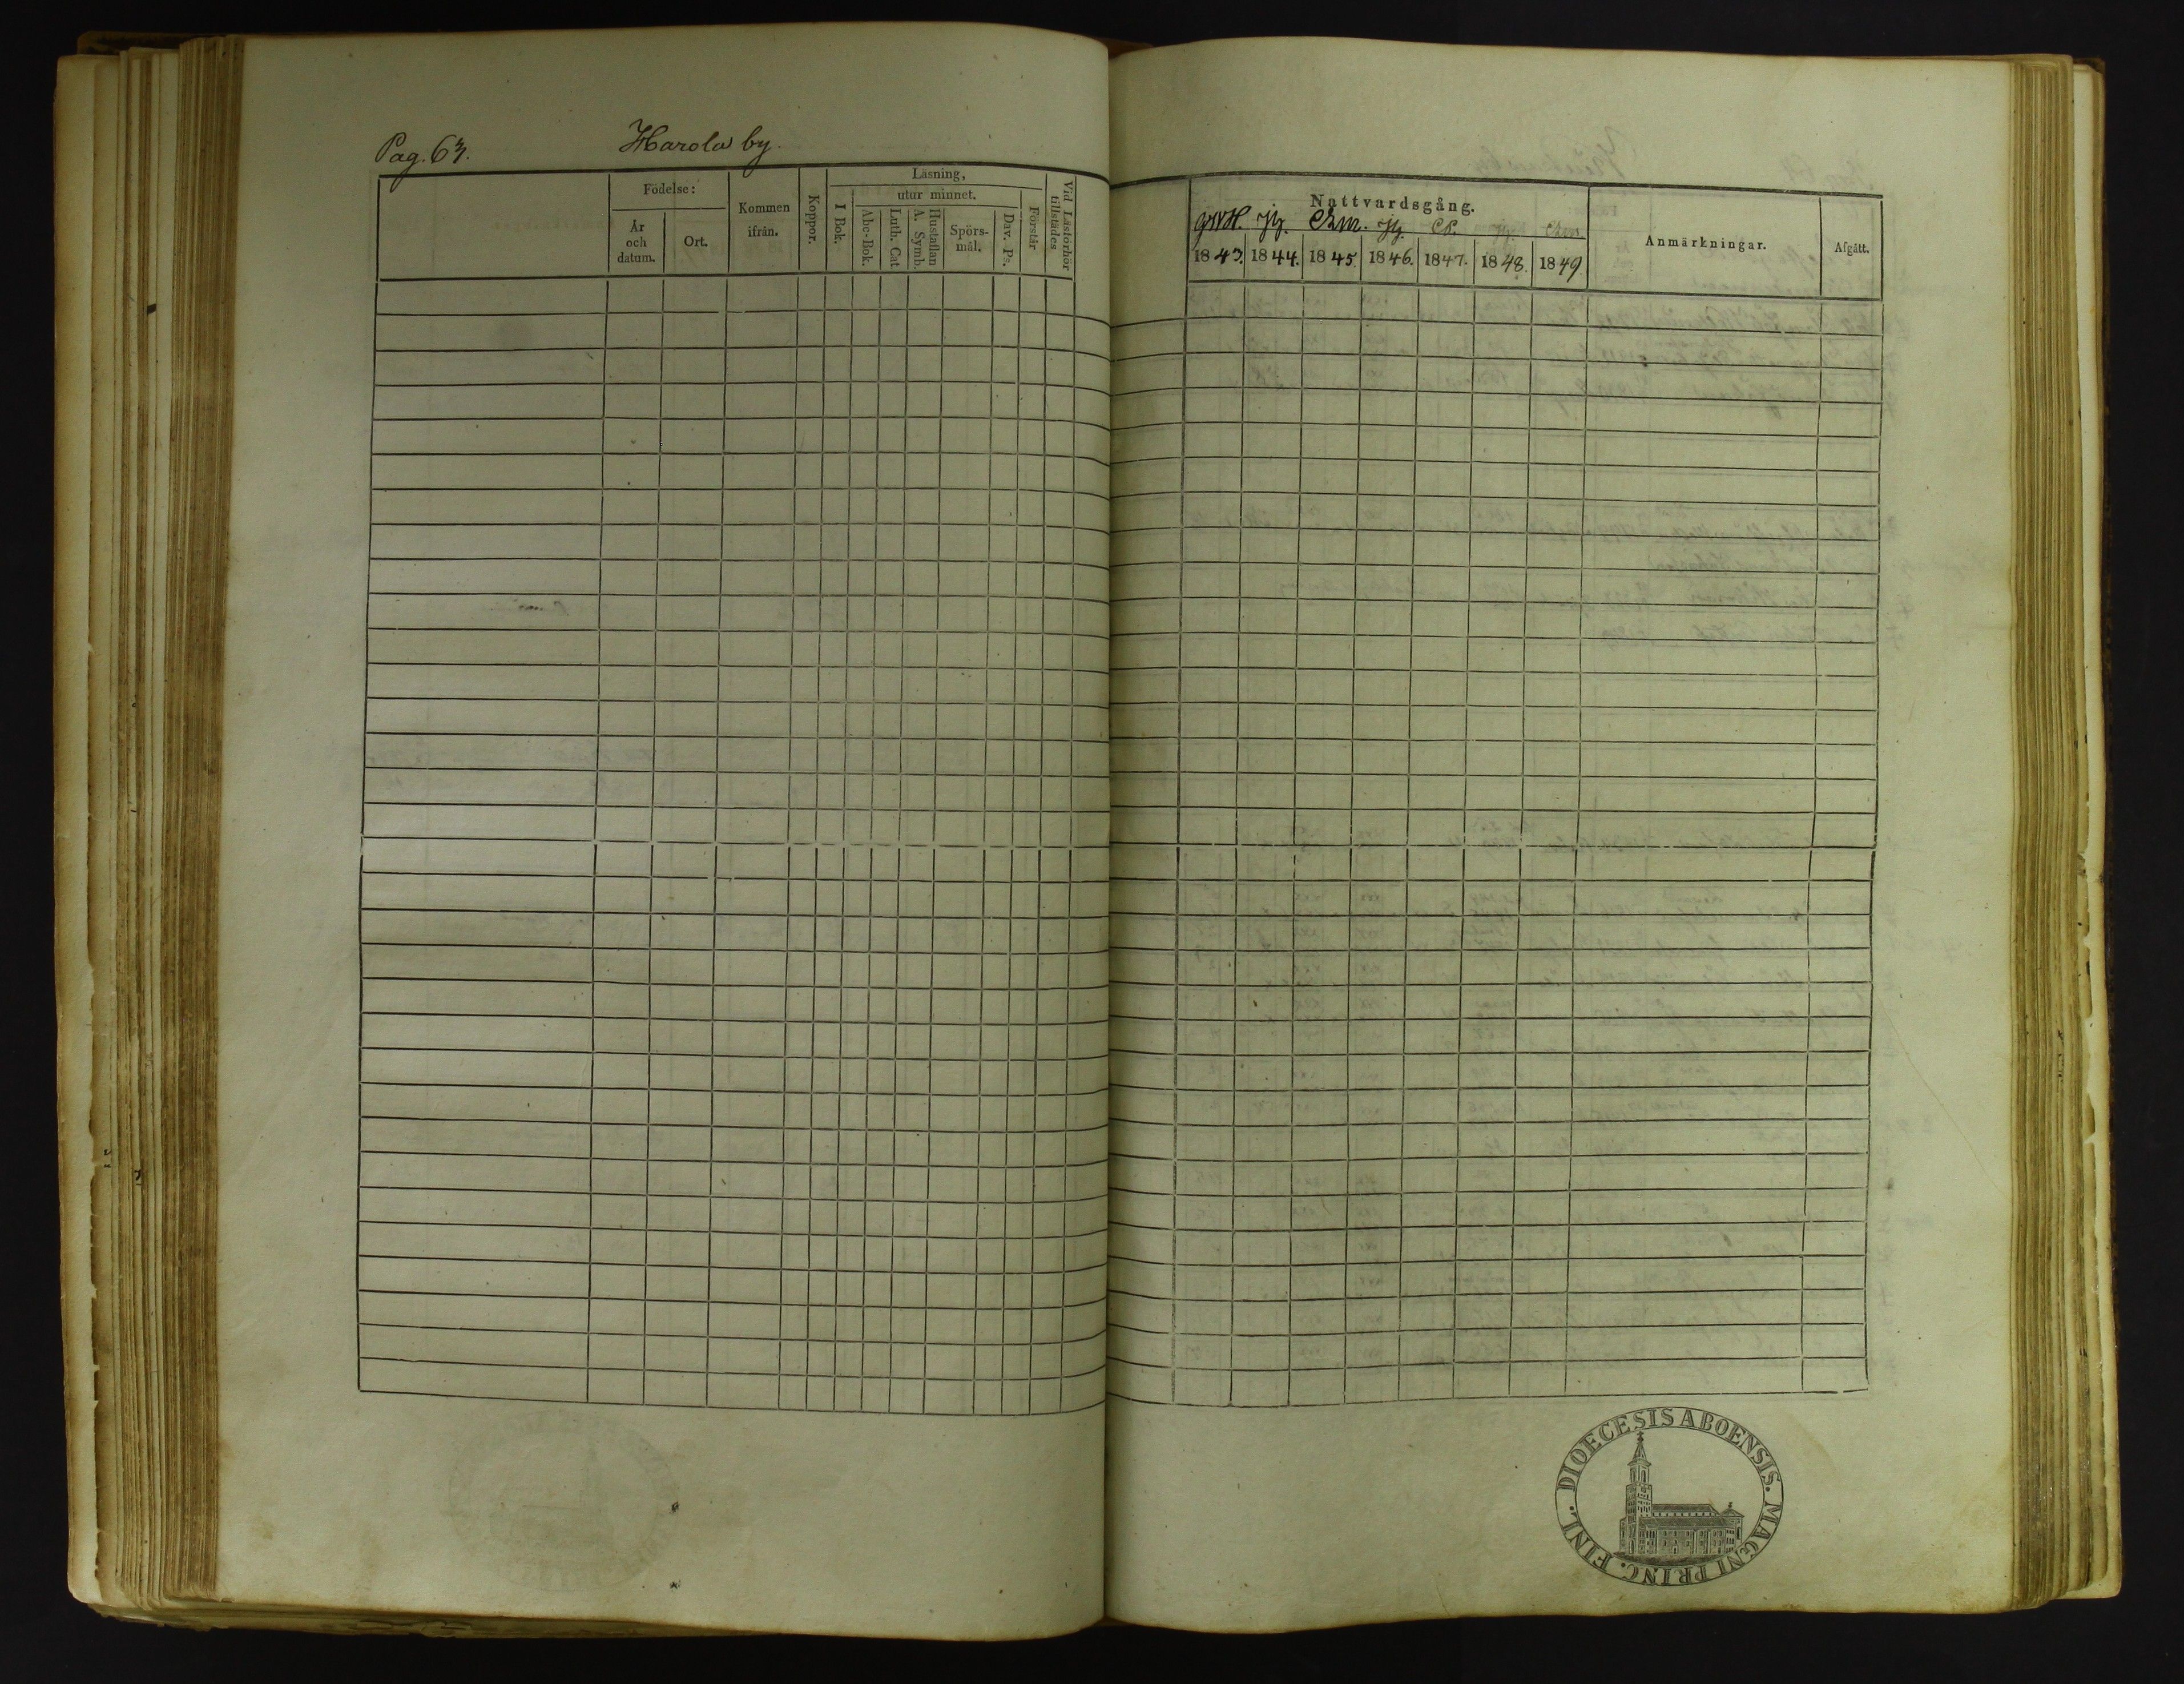 Pag. 63.
Harola by.
Födelse:
År och datum.
Ort.
Kommen ifrån.
Koppor.
Läsning,
I Bok.
utur minnet.
Abc-Bok.
Luth. Cat
Hustaflan A. Symb.
Spörs-mål.
Dav. Ps.
Förstår
Vid Läsförhör tillstädes
Nattvardsgång.
1843. 1844. 1845. 1846. 1847. 1848. 1849
Anmärkningar.
Afgått.
DIOECESIS ABOENSIS. MAGNI PRINC. FINL.